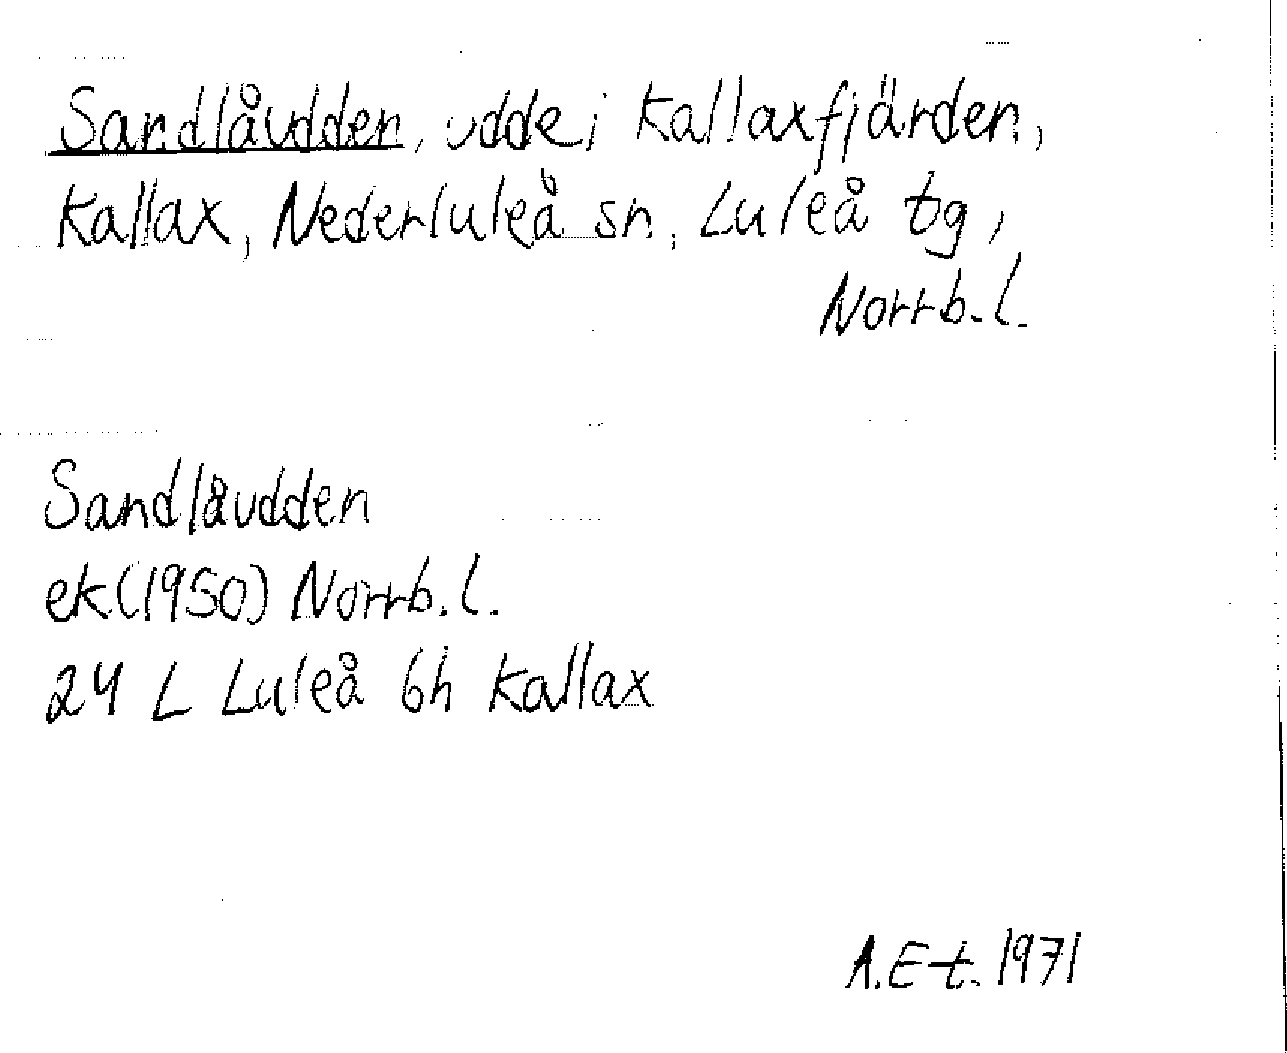 Sandlåudden, udde i Kallaxfjärden,
Kallax, Nederluleå sn, Luleå tg,
Norrb. l.
Sandlåudden
ek (1950) Norrb. l.
24 L Luleå 6h Kallax
A. E-t. 1971